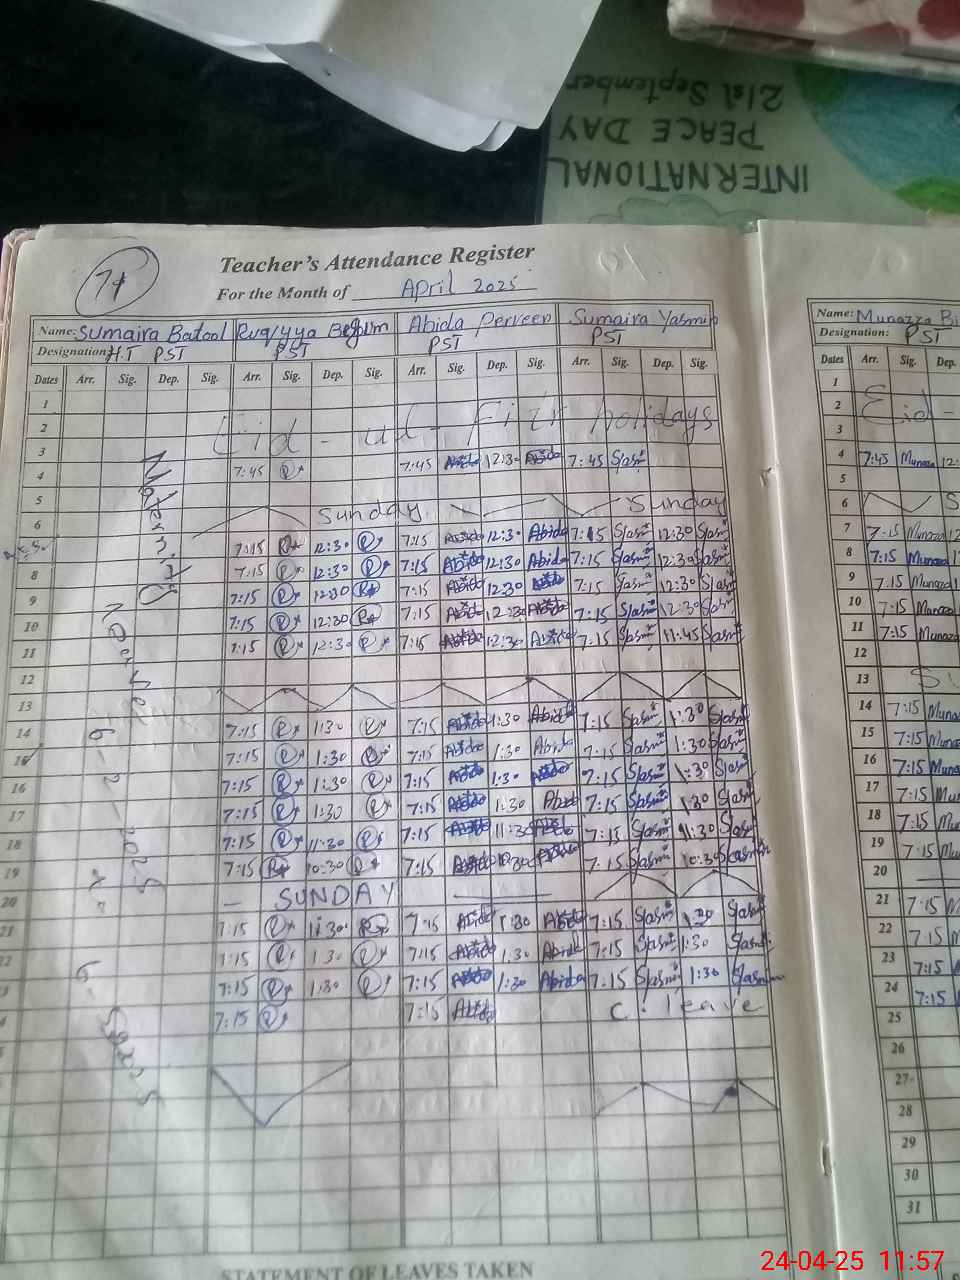 INTERNATIONAL
PEACE DAY
21st September
74
Teacher's Attendance Register
For the Month of April 2025
Name: Sumaira Batool Ruqayya Begum Abida Perveen Sumaira Yasmin Name: Munazza
Designation: H.T PST PST PST PST Designation: PST
Dates Arr. Sig. Dep. Sig. Arr. Sig. Dep. Sig. Arr. Sig. Dep. Sig. Arr. Sig. Dep. Sig. Dates Arr. Sig. Dep.
1 1
2 Eid-ud-Fitr holidays 2 Eid-
3 3
4 7:45 R 7:45 Abida 12:30 Abida 7:45 S/asmi 4 7:45 Munaza 12:
5 Sunday Sunday 5
6 7:15 R 12:30 R 7:15 Abida 12:30 Abida 7:15 S/asmi 12:30 S/asmi 6 S
7:15 R 12:30 R 7:15 Abida 12:30 Abida 7:15 S/asmi 12:30 S/asmi 7 7:15 Munaza
8 7:15 R 12:30 R 7:15 Abida 12:30 Abida 7:15 S/asmi 12:30 S/asmi 8 7:15 Munaza
9 7:15 R 12:30 R 7:15 Abida 12:30 Abida 7:15 S/asmi 12:30 S/asmi 9 7:15 Munaza
10 7:15 R 12:30 R 7:15 Abida 12:30 Abida 7:15 S/asmi 11:45 S/asmi 10 7:15 Munaza
11 11 7:15 Munaza
12 12
13 13 SU
14 7:15 R 1:30 R 7:15 Abida 1:30 Abida 7:15 S/asmi 1:30 S/asmi 14 7:15 Muna
15 7:15 R 1:30 R 7:15 Abida 1:30 Abida 7:15 S/asmi 1:30 S/asmi 15 7:15 Muna
16 7:15 R 1:30 R 7:15 Abida 1:30 Abida 7:15 S/asmi 1:30 S/asmi 16 7:15 Muna
17 7:15 R 1:30 R 7:15 Abida 1:30 Abida 7:15 S/asmi 1:30 S/asmi 17 7:15 Mu
18 7:15 R 11:30 R 7:15 Abida 11:30 Abida 7:15 S/asmi 11:30 S/asmi 18 7:15 Mun
19 7:15 R 10:30 R 7:15 Abida 10:30 Abida 7:15 S/asmi 10:30 S/asmin 19 7:15 Mu
20 - SUNDAY 20
21 7:15 R 1:30 R 7:15 Abida 1:30 Abida 7:15 S/asmi 1:30 S/asmi 21 7:15 M
7:15 R 1:30 R 7:15 Abida 1:30 Abida 7:15 S/asmi 1:30 S/asmi 22 7:15 M
7:15 R 1:30 R 7:15 Abida 1:30 Abida 7:15 S/asmi 1:30 S/asmi 23 7:15
7:15 R 7:15 Abida C. leave 24 7:15
25
26
27
28
29
30
31
Maternity
Leave
6-2-2025
STATEMENT OF LEAVES TAKEN
24-04-25 11:57